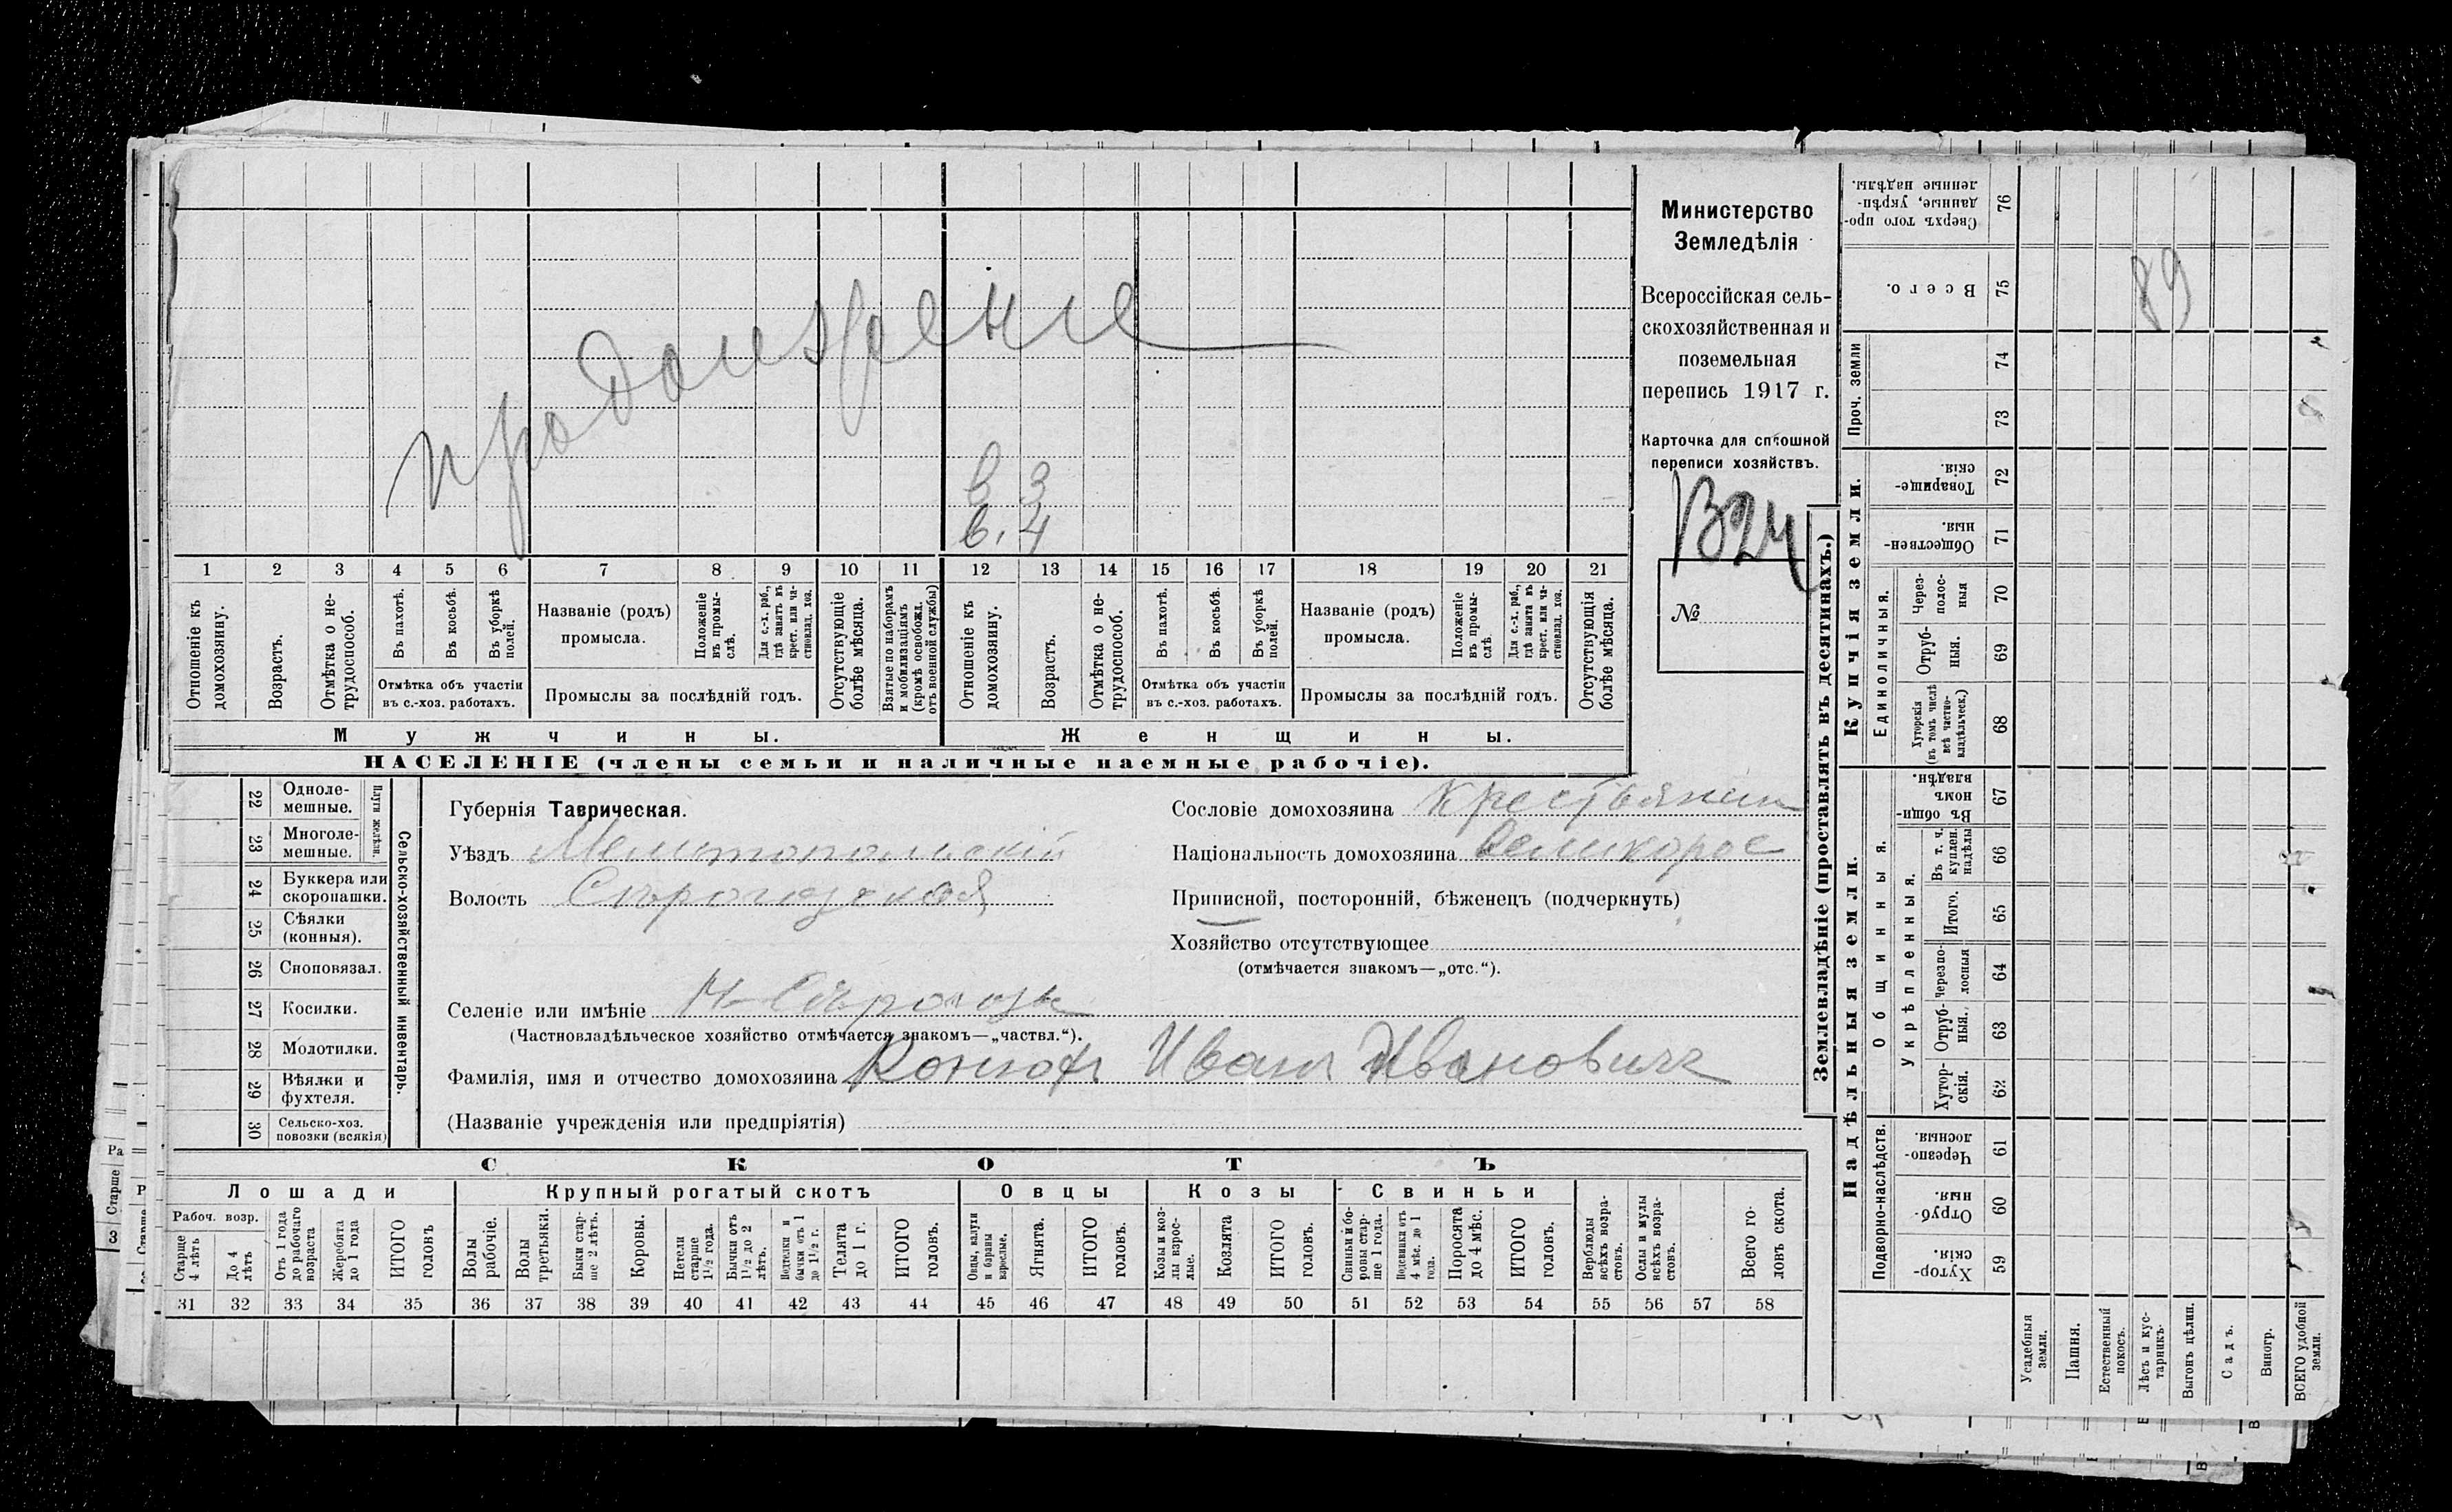 продолжение
в 3
в. 4
1 2 3 4 5 6 7 8 9 10 11 12 13 14 15 16 17 18 19 20 21
Отношеніе къ домохозяину.
Возрастъ.
Отмѣтка о не-
трудоспособ.
Въ пахотѣ.
Въ косьбѣ.
Въ уборкѣ
полей.
Отмѣтка объ участіи
въ с.-хоз. работахъ.
Названіе (родъ)
промысла.
Положеніе
въ промы-
слѣ.
Для с.-х. раб.,
гдѣ занятъ въ
крест. или ча-
стновлад. хоз.
Промыслы за послѣдній годъ.
Отсутствующіе
болѣе мѣсяца.
Взятые по наборамъ
и мобилизаціямъ
(кромѣ освобожд.
отъ военной службы)
Отношеніе къ
домохозяину.
Возрастъ.
Отмѣтка о не-
трудоспособ.
Въ пахотѣ.
Въ косьбѣ.
Въ уборкѣ
полей.
Отмѣтка объ участіи
въ с.-хоз. работахъ.
Названіе (родъ)
промысла.
Положеніе
въ промы-
слѣ.
Для с.-х. раб.,
гдѣ занята въ
крест. или ча-
стновлад. хоз.
Промыслы за послѣдній годъ.
Отсутствующія
болѣе мѣсяца.
Мужчины. Женщины.
НАСЕЛЕНІЕ (члены семьи и наличные наемные рабочіе).
Министерство
Земледѣлія
Всероссійская сель-
скохозяйственная и
поземельная
перепись 1917 г.
Карточка для сплошной
переписи хозяйствъ.
В24
№
22 Одноле-
мешные.
23 Многоле-
мешные.
Плуги желѣзн.
24 Буккера или
скоропашки.
25 Сѣялки
(конныя).
26 Сноповязал.
27 Косилки.
28 Молотилки.
29 Вѣялки и
фухтеля.
30 Сельско-хоз.
повозки (всякія)
Сельско-хозяйственный инвентарь.
Губернія Таврическая.
Уѣздъ Мелитопольскій
Волость Сѣрогозская
Селеніе или имѣніе Н-Сѣрогозы
(Частновладѣльческое хозяйство отмѣчается знакомъ—„частвл.“).
Фамилія, имя и отчество домохозяина Иванъ Ивановичъ
(Названіе учрежденія или предпріятія)
Сословіе домохозяина Крестьянин
Національность домохозяина Великорос
Приписной, посторонній, бѣженецъ (подчеркнуть)
Хозяйство отсутствующее
(отмѣчается знакомъ—„отс.“).
СКОТЪ
Лошади Крупный рогатый скотъ Овцы Козы Свиньи
Рабоч. возр.
Старше
4 лѣтъ
До 4
лѣтъ
Отъ 1 года
до рабочаго
возраста
Жеребята
до 1 года
ИТОГО
головъ
Волы
рабочіе.
Волы
третьяки.
Быки стар-
ше 2 лѣтъ.
Коровы.
Нетели
старше
1½ года.
Бычки отъ
1½ до 2
лѣтъ.
Подтелки и
бычки отъ 1
до 1½ г.
Телята
до 1 г.
ИТОГО
головъ.
Овцы, валухи
и бараны
взрослые.
Ягнята.
ИТОГО
головъ.
Козы и коз-
лы взрос-
лые.
Козлята
ИТОГО
головъ.
Свиньи и бо-
ровы стар-
ше 1 года.
Подсвинки отъ
4 мѣс. до 1
года.
Поросята
до 4 мѣс.
ИТОГО
головъ.
Верблюды
всѣхъ возра-
стовъ.
Ослы и мулы
всѣхъ возра-
стовъ.
Всего го-
ловъ скота.
31 32 33 34 35 36 37 38 39 40 41 42 43 44 45 46 47 48 49 50 51 52 53 54 55 56 57 58
Землевладѣніе (проставлять въ десятинахъ.)
Купчія земли.
Надѣльныя земли.
Сверхъ того про-
данные, укрѣп-
ленные надѣлы.
76
Всего.
75
89
Проч. земли
74
73
Товарище-
скія.
72
Обществен-
ныя.
71
Единоличныя.
Через-
полос-
ныя
70
Отруб-
ныя.
69
Хуторскія
(въ томъ числѣ
всѣ частно-
владѣльческ.)
68
Общинныя.
Въ общи-
номъ
владѣн.
67
Укрѣпленныя.
Въ т. ч.
куплен.
надѣлы
66
Итого.
65
Черезпо-
лосныя
64
Отруб-
ныя.
63
Хутор-
скія.
62
Подворно-наслѣдств.
Черезпо-
лосныя.
61
Отруб-
ныя.
60
Хутор-
скія.
59
Усадебныя
земли.
Пашня.
Естественный
покосъ.
Лѣсъ и кус-
тарникъ.
Выгонъ цѣлин.
Садъ.
Виногр.
ВСЕГО удобной
земли.
Ра
Старше
3